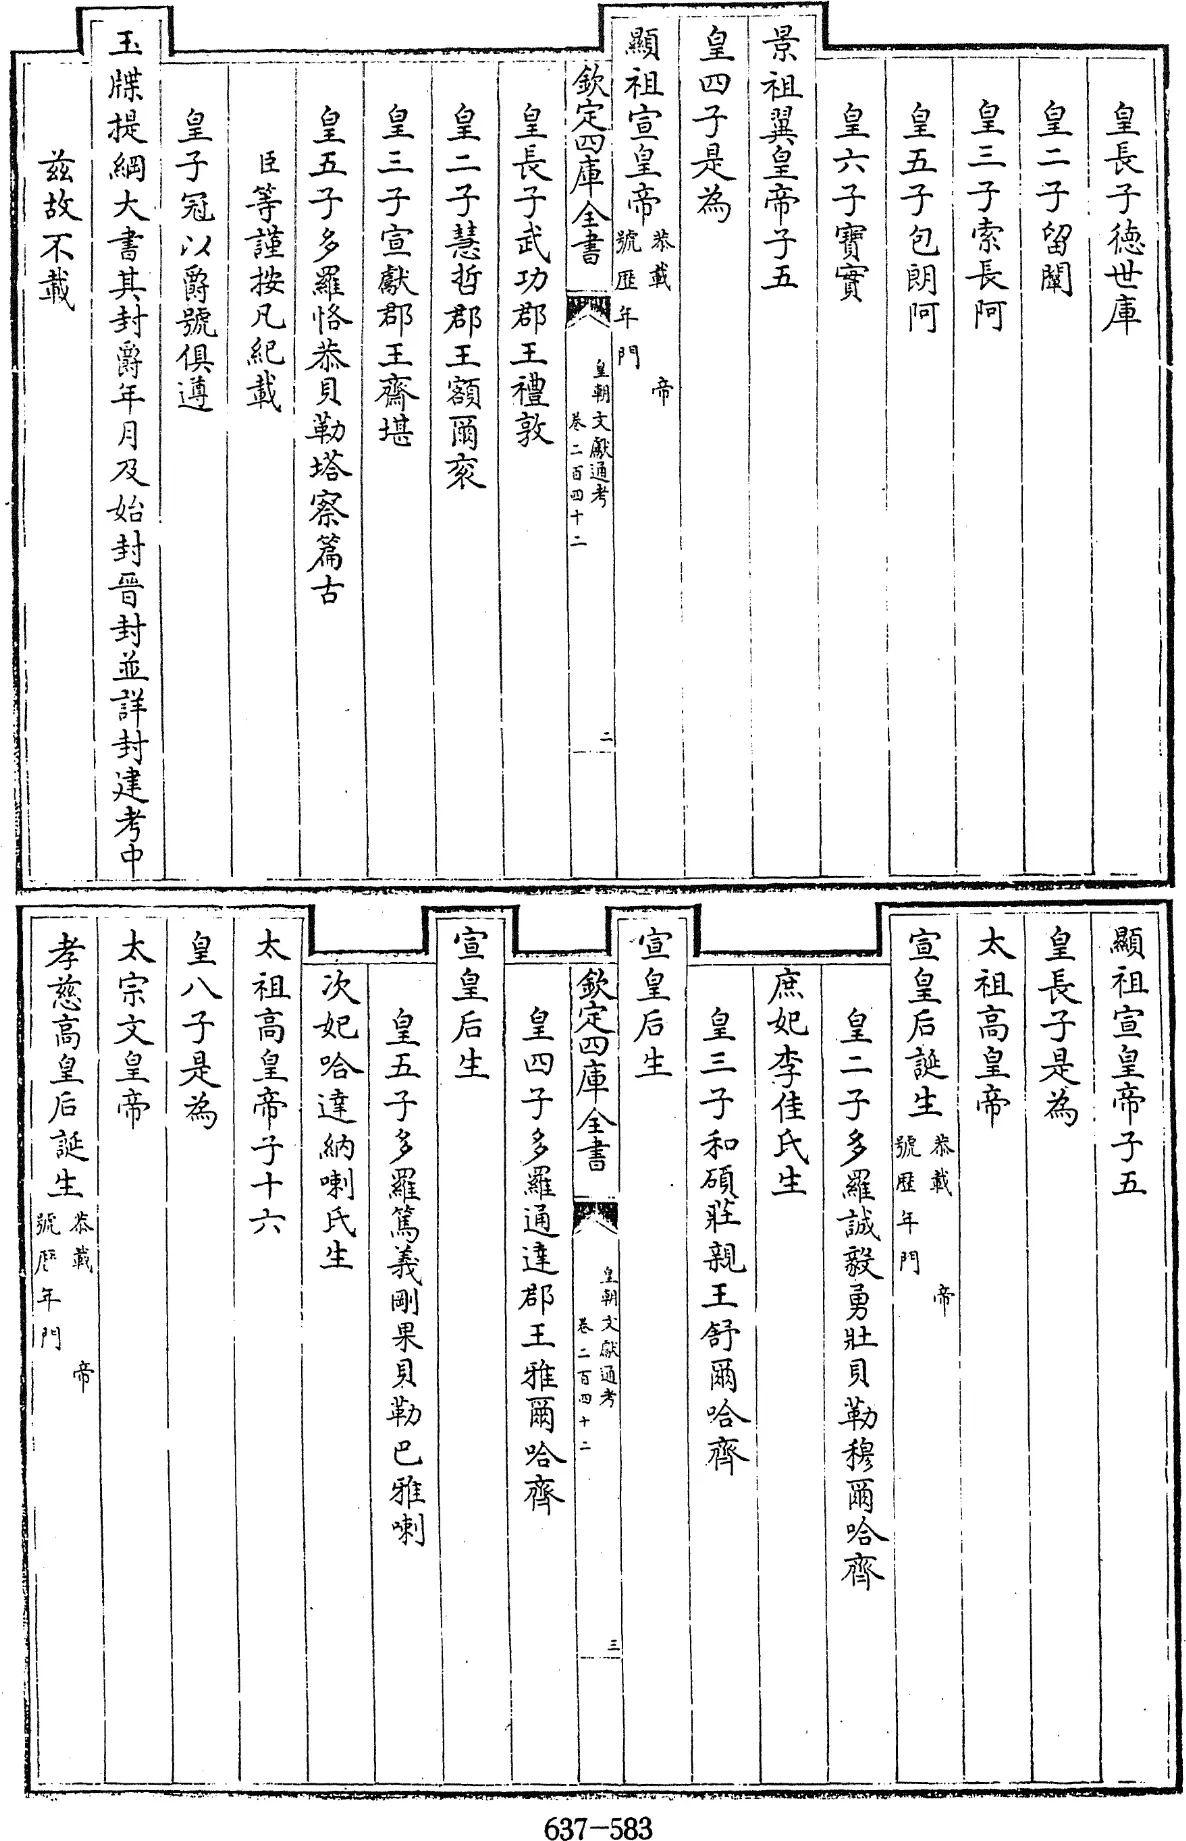 皇長子德世庫
皇二子留闡
皇三子索長阿
皇五子包朗阿
皇六子寶實
景祖翼皇帝子五
皇四子是為
顯祖宣皇帝恭載 帝
號歴年門
欽定四庫全書
皇朝文獻通考
卷二百四十二
二
皇長子武功郡王禮敦
皇二子慧哲郡王額爾衮
皇三子宣獻郡王齋堪
皇五子多羅恪恭貝勒塔察篇古
臣等謹按凡紀載
皇子冠以爵號俱遵
玉牒提綱大書其封爵年月及始封晉封並詳封建考中
茲故不載
顯祖宣皇帝子五
皇長子是為
太祖高皇帝
宣皇后誕生恭載 帝
號歴年門
皇二子多羅誠毅勇壯貝勒穆爾哈齊
庶妃李佳氏生
皇三子和碩莊親王舒爾哈齊
宣皇后生
欽定四庫全書
皇朝文獻通考
卷二百四十二
三
皇四子多羅通達郡王雅爾哈齊
宣皇后生
皇五子多羅篤義剛果貝勒巴雅喇
次妃哈達納喇氏生
太祖高皇帝子十六
皇八子是為
太宗文皇帝
孝慈高皇后誕生恭載 帝
號歴年門
637-583